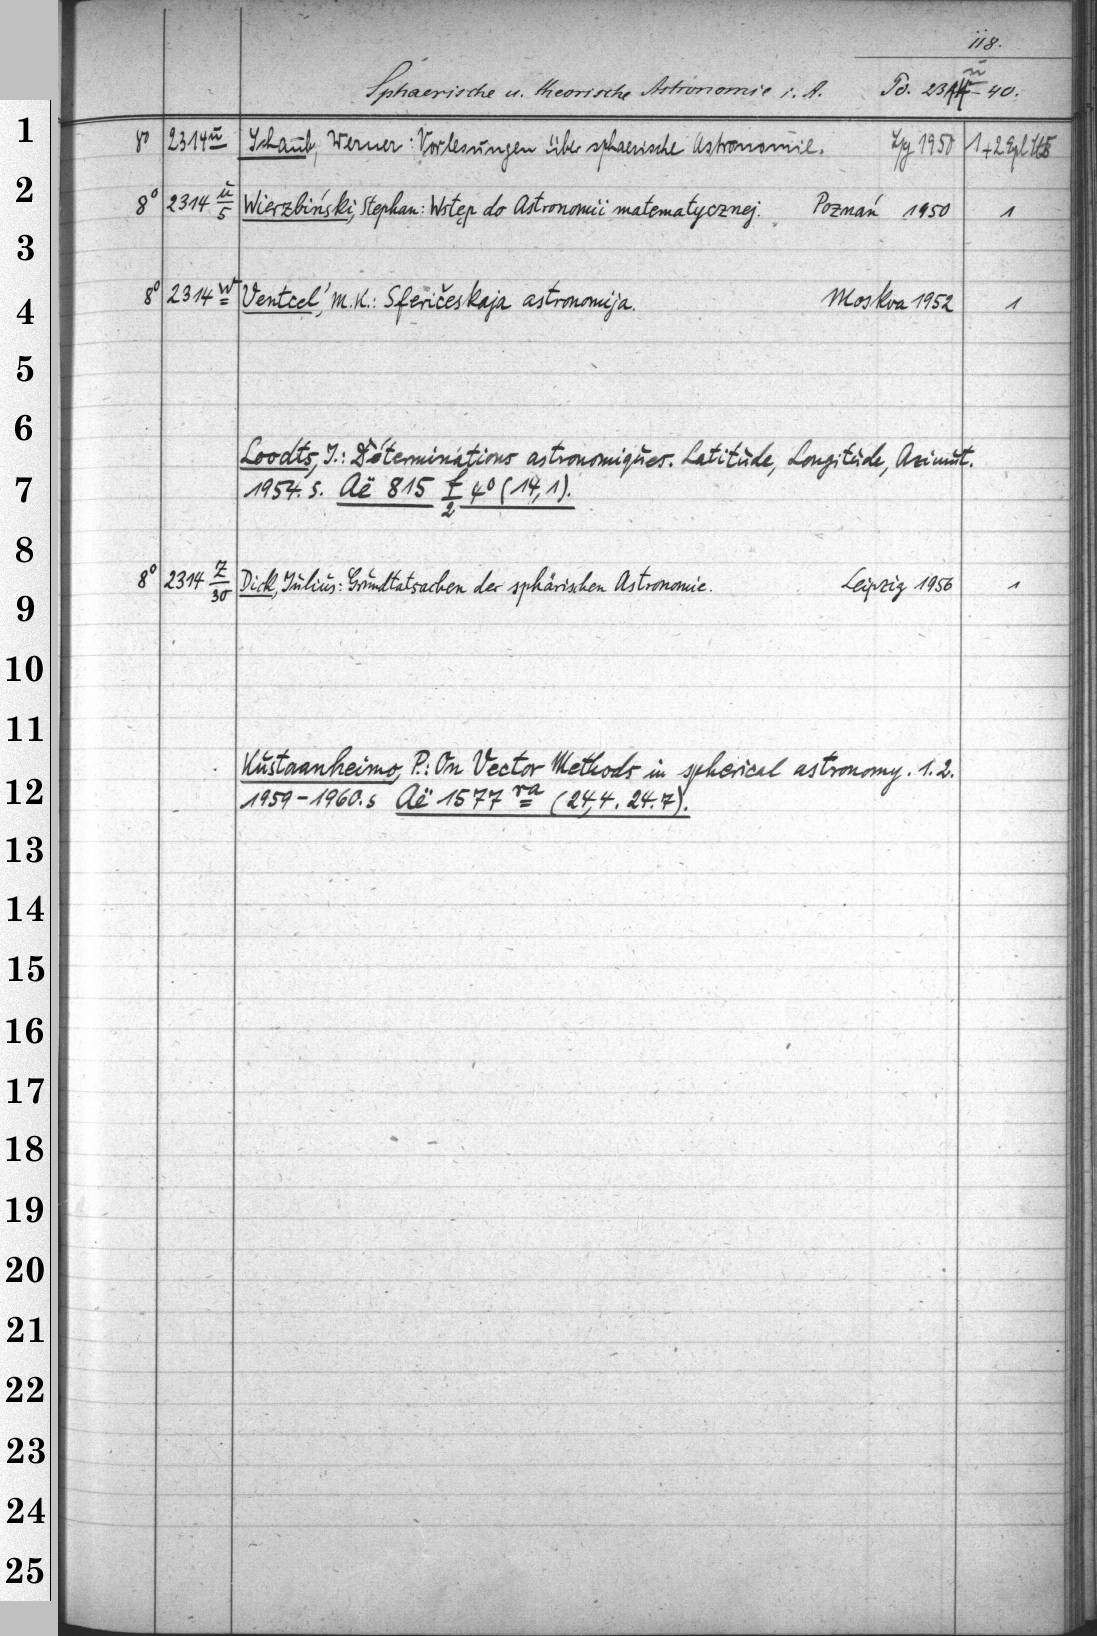 118.
Sphaerische u. theorische Astronomie i. A. Po. 2314 ü - 40.
1 8° 2314 u Schaub, Werner: Vorlesungen über sphaerische Astronomie. Lpg 1950 1+2
2 8° 2314 ü/5 Wierzbiński, Stephan: Wstęp do Astronomii matematycznej. Poznań 1950 1
3
4 8° 2314 w Ventcel', M.K.: Sferičeskaja astronomija. Moskva 1952 1
5
6
Loodts, J.: Déterminations astronomiques. Latitude, Longitude, Azimut.
7 1954. s. Aë 815 f/2 4° (14,1).
8
8° 2314 z/30 Dick, Julius: Grundtatsachen der sphärischen Astronomie. Leipzig 1956 1
9
10
11
Kustaanheimo, P.: On Vector Methods in spherical astronomy. 1.2.
12 1959-1960. s Aë 1577 ra (24,4. 24.7).
13
14
15
16
17
18
19
20
21
22
23
24
25